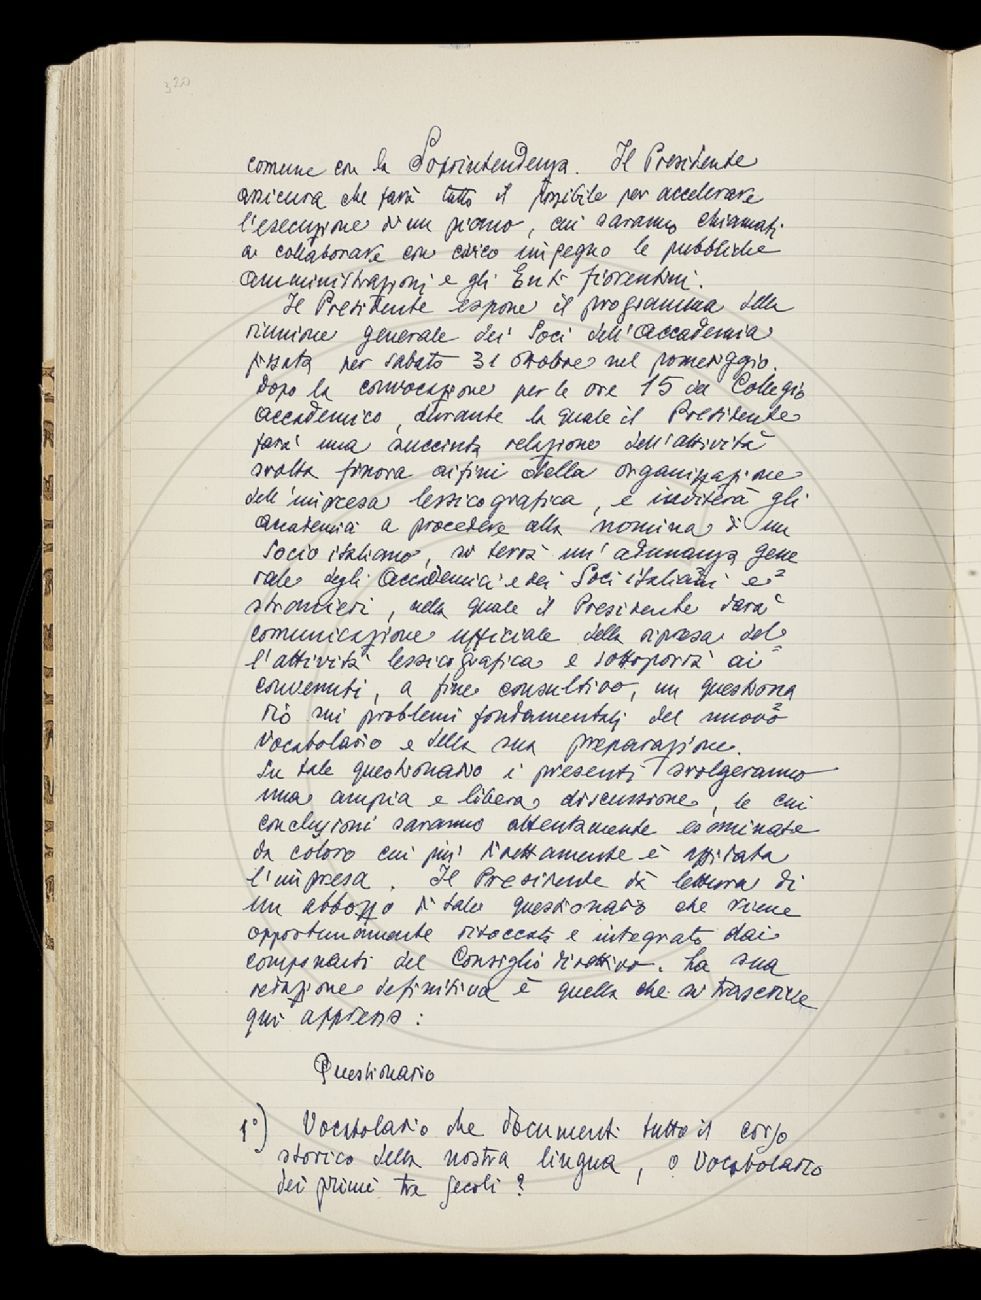 320
comune con la Soprintendenza. Il Presidente
assicura che farà tutto il possibile per accelerare
l'esecuzione di un piano, cui saranno chiamati
a collaborare con civico impegno le pubbliche
amministrazioni e gli Enti fiorentini.
Il Presidente espone il programma della
riunione generale dei Soci dell'Accademia
fissata per sabato 31 ottobre nel pomeriggio.
Dopo la convocazione per le ore 15 del Collegio
accademico, durante la quale il Presidente
farà una succinta relazione dell'attività
svolta finora ai fini della organizzazione
dell'impresa lessicografica, e inviterà gli
Accademici a procedere alla nomina di un
Socio italiano, si terrà un'adunanza gene
rale degli Accademici e dei Soci italiani e
stranieri, nella quale il Presidente darà
comunicazione ufficiale della ripresa del
l'attività lessicografica e sottoporrà ai
convenuti, a fine consultivo, un questiona
rio sui problemi fondamentali del nuovo
Vocabolario e della sua preparazione.
Su tale questionario i presenti svolgeranno
una ampia e libera discussione, le cui
conclusioni saranno attentamente esaminate
da coloro cui più direttamente è affidata
l'impresa. Il Presidente dà lettura di
un abbozzo di tale questionario che viene
opportunamente ritoccato e integrato dai
componenti del Consiglio direttivo. La sua
redazione definitiva è quella che si trascrive
qui appresso:
Questionario
1°) Vocabolario che documenti tutto il corso
storico della nostra lingua, o Vocabolario
dei primi tre secoli?